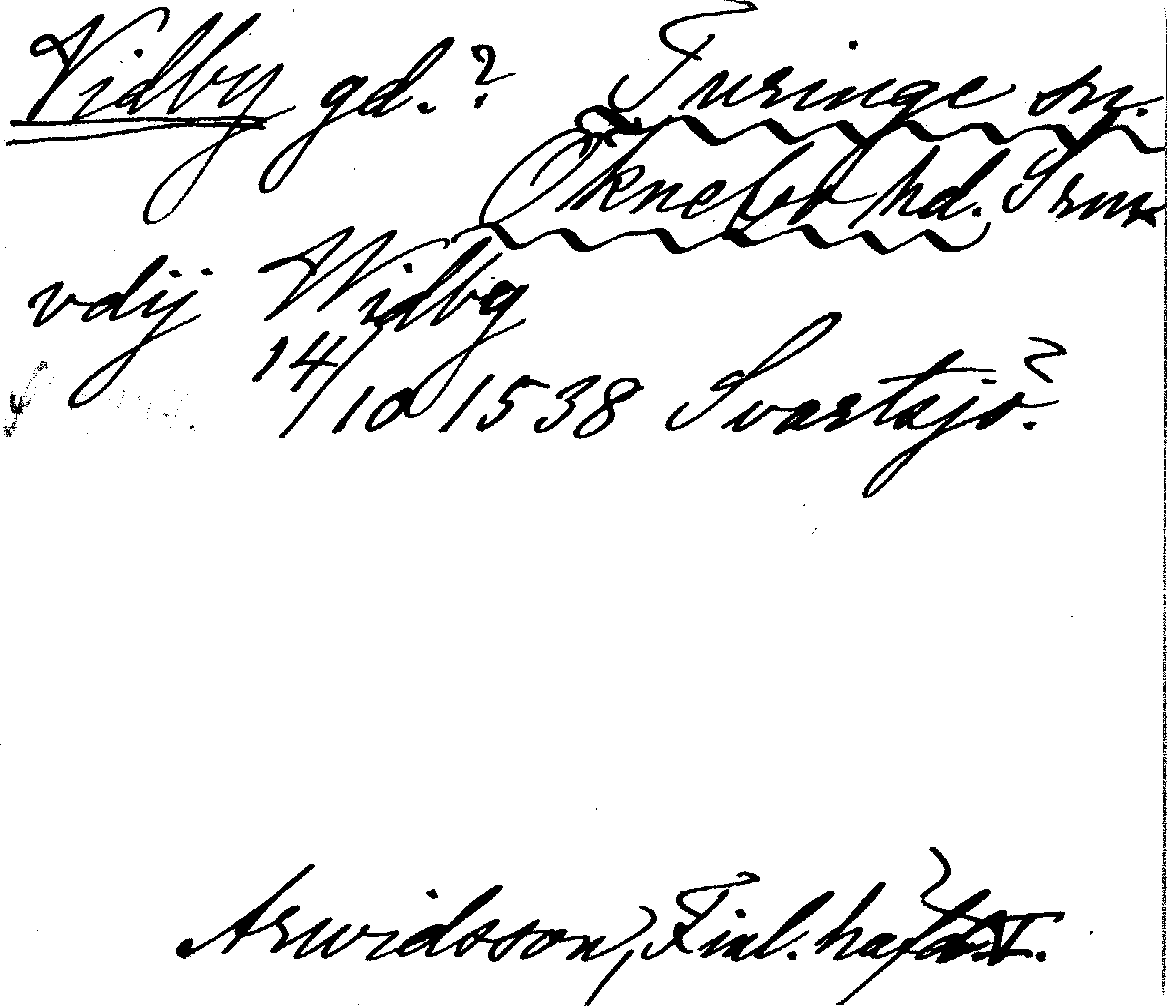 Vidby gd. ? Turinge sn.
Öknebo hd. Srm
vdij Widby
14/10 1538 Svartsjö.
Arwidsson, Finl. häfd. I.